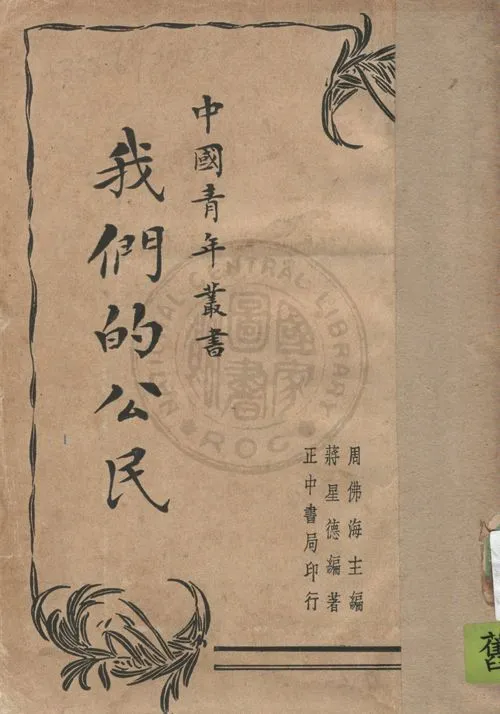 中國青年叢書
我們的公民
周佛海主編
蔣星德編著
正中書局印行
NATIONAL CENTRAL LIBRARY
R.O.C.
國家圖書館
舊